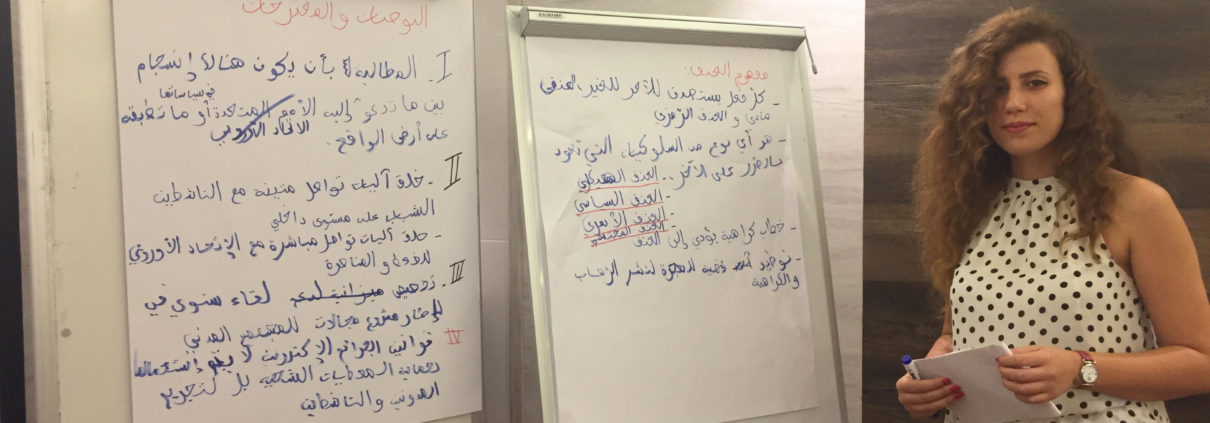 التوصيات والمقترحات
I. المطالبة بأن يكون هنالك إنسجام
بين ما تدعو إليه الأمم المتحدة أو ما تطبقه
في سياساتها
الاتحاد الأوروبي
على أرض الواقع.
II - خلق آليات تواصل متينة مع الناشطين
الشباب على مستوى داخلي
- خلق آليات تواصل مباشرة مع الإتحاد الأوروبي
للضغط و المناصرة
III. تخصيص ميزانية لدعم لقاء سنوي في
إطار مشروع مجالات للمجتمع المدني
IV قوانين الجرائم الإلكترونية لا يتم إستعمالها
لحماية المعطيات الشخصية بل لتجريم
المدونين والناشطين
مفهوم العنف:
- كل فعل يستهدف للأخر للغير، العنف
مادي و العنف الرمزي
- هو أي نوع من السلوكيات التي تعود
بالضرر على الآخر. - العنف الهيكلي
- العنف السياسي
- العنف الأسري
العنف المجتمعي
- خطاب كراهية يؤدي إلى العنف
- توظيف قضية الهجرة لنشر الإرهاب
والكراهية